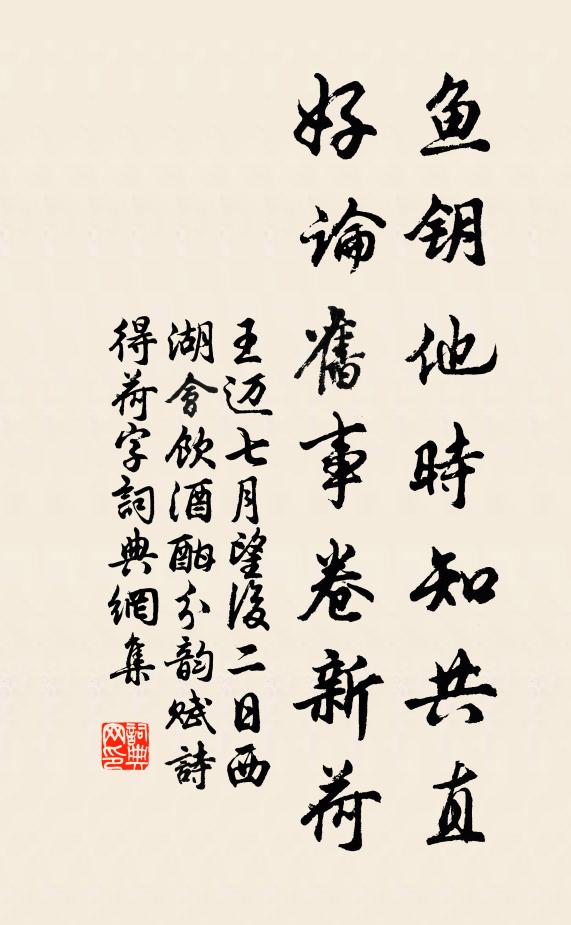 鱼钥他時知共直
好論舊事卷新荷
王迈七月望後二日西
湖會飲酒酣分韵赋詩
得荷字詞典網集
詞典
网印